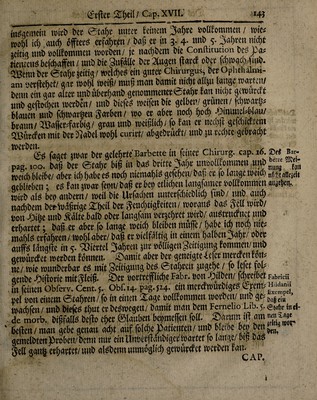 Erster Theil / Cap. XVII. 143
insgemein wird der Stahr unter keinem Jahre vollkommen / wie-
wohl ich auch öffters erfahren / daß er in 3. 4. und 5. Jahren nicht
zeitig und vollkommen worden / je nachdem die Constitution des Pa-
tienten beschaffen / und die Zufälle der Augen starck oder schwach sind.
Wenn der Stahr zeitig / welches ein guter Chirurgus, der Ophthalmi-
am verstehet / gar wohl weiß / muß man damit nicht allzu lange warten /
denn ein gar alter und überhand genommener Stahr kan nicht gewürckt
und gestochen werden / und dieses weisen die gelben / grünen / schwartz-
blauen und schwartzen Farben / wo er aber noch hoch Himmel-blau /
braun / Wasser-farbig / grau und weißlich / so kan er rechst geschickten
Würcken mit der Nadel wohl curirt / abgedruckt / und zu rechte gebracht
werden.
Es saget zwar der gelehrte Barbette in seiner Chirurg. cap. 16.
pag. 100. daß der Stahr biß in das dritte Jahr unvollkommen und
weich bleibe / aber ich habe es noch niemahls gesehen / daß er so lange weich
geblieben ; es kan zwar seyn / daß er bey etlichen langsamer vollkommen
wird als bey andern / weil die Ursachen unterschiedlich sind / und auch
nachdem der wäßrige Theil der Feuchtigkeiten / woraus das Fell wird /
von Hitze und Kälte bald oder langsam verzehret wird / austrucknet und
erhartet ; daß er aber so lange weich bleiben müste / habe ich noch nie-
mahls erfahren / wohl aber / daß er vielfältig in einem halben Jahr / oder
auffs längste in 5. Viertel Jahren zur völligen Zeitigung kommen / und
gewürcket werden können. Damit aber der geneigte Leser mercken kön-
ne / wie wunderbar es mit Zeitigung des Stahren zugehe / so lese fol-
gende Historie mit Fleiß. Der vortreffliche Fabr. von Hilden / schreibet
in seinen Observ. Cent. 5. Obs. 14. pag. 514. ein merckwürdiges Exem-
pel von einem Stahren / so in einen Tage vollkommen worden / und ge-
wachsen / und dieses thut er deswegen / damit man dem Fernelio Lib. 5.
de morb. dißfalls desto eher Glauben beymessen soll. Darum ist am
besten / man gebe genau acht auf solche Patienten / und bleibe bey den
gemeldten Proben / denn nur ein Unverständiger wartet so lange / biß das
Fell gantz erhartet / und alsdenn unmöglich gewürcket werden kan.
CAP.
Des Bar-
bette Mei-
nung ist
nicht allezeit
anzusehen.
Fabricii
Hildanii
Exempel,
daß ein
Stahr in ei-
nen Tage
zeitig wor-
den.